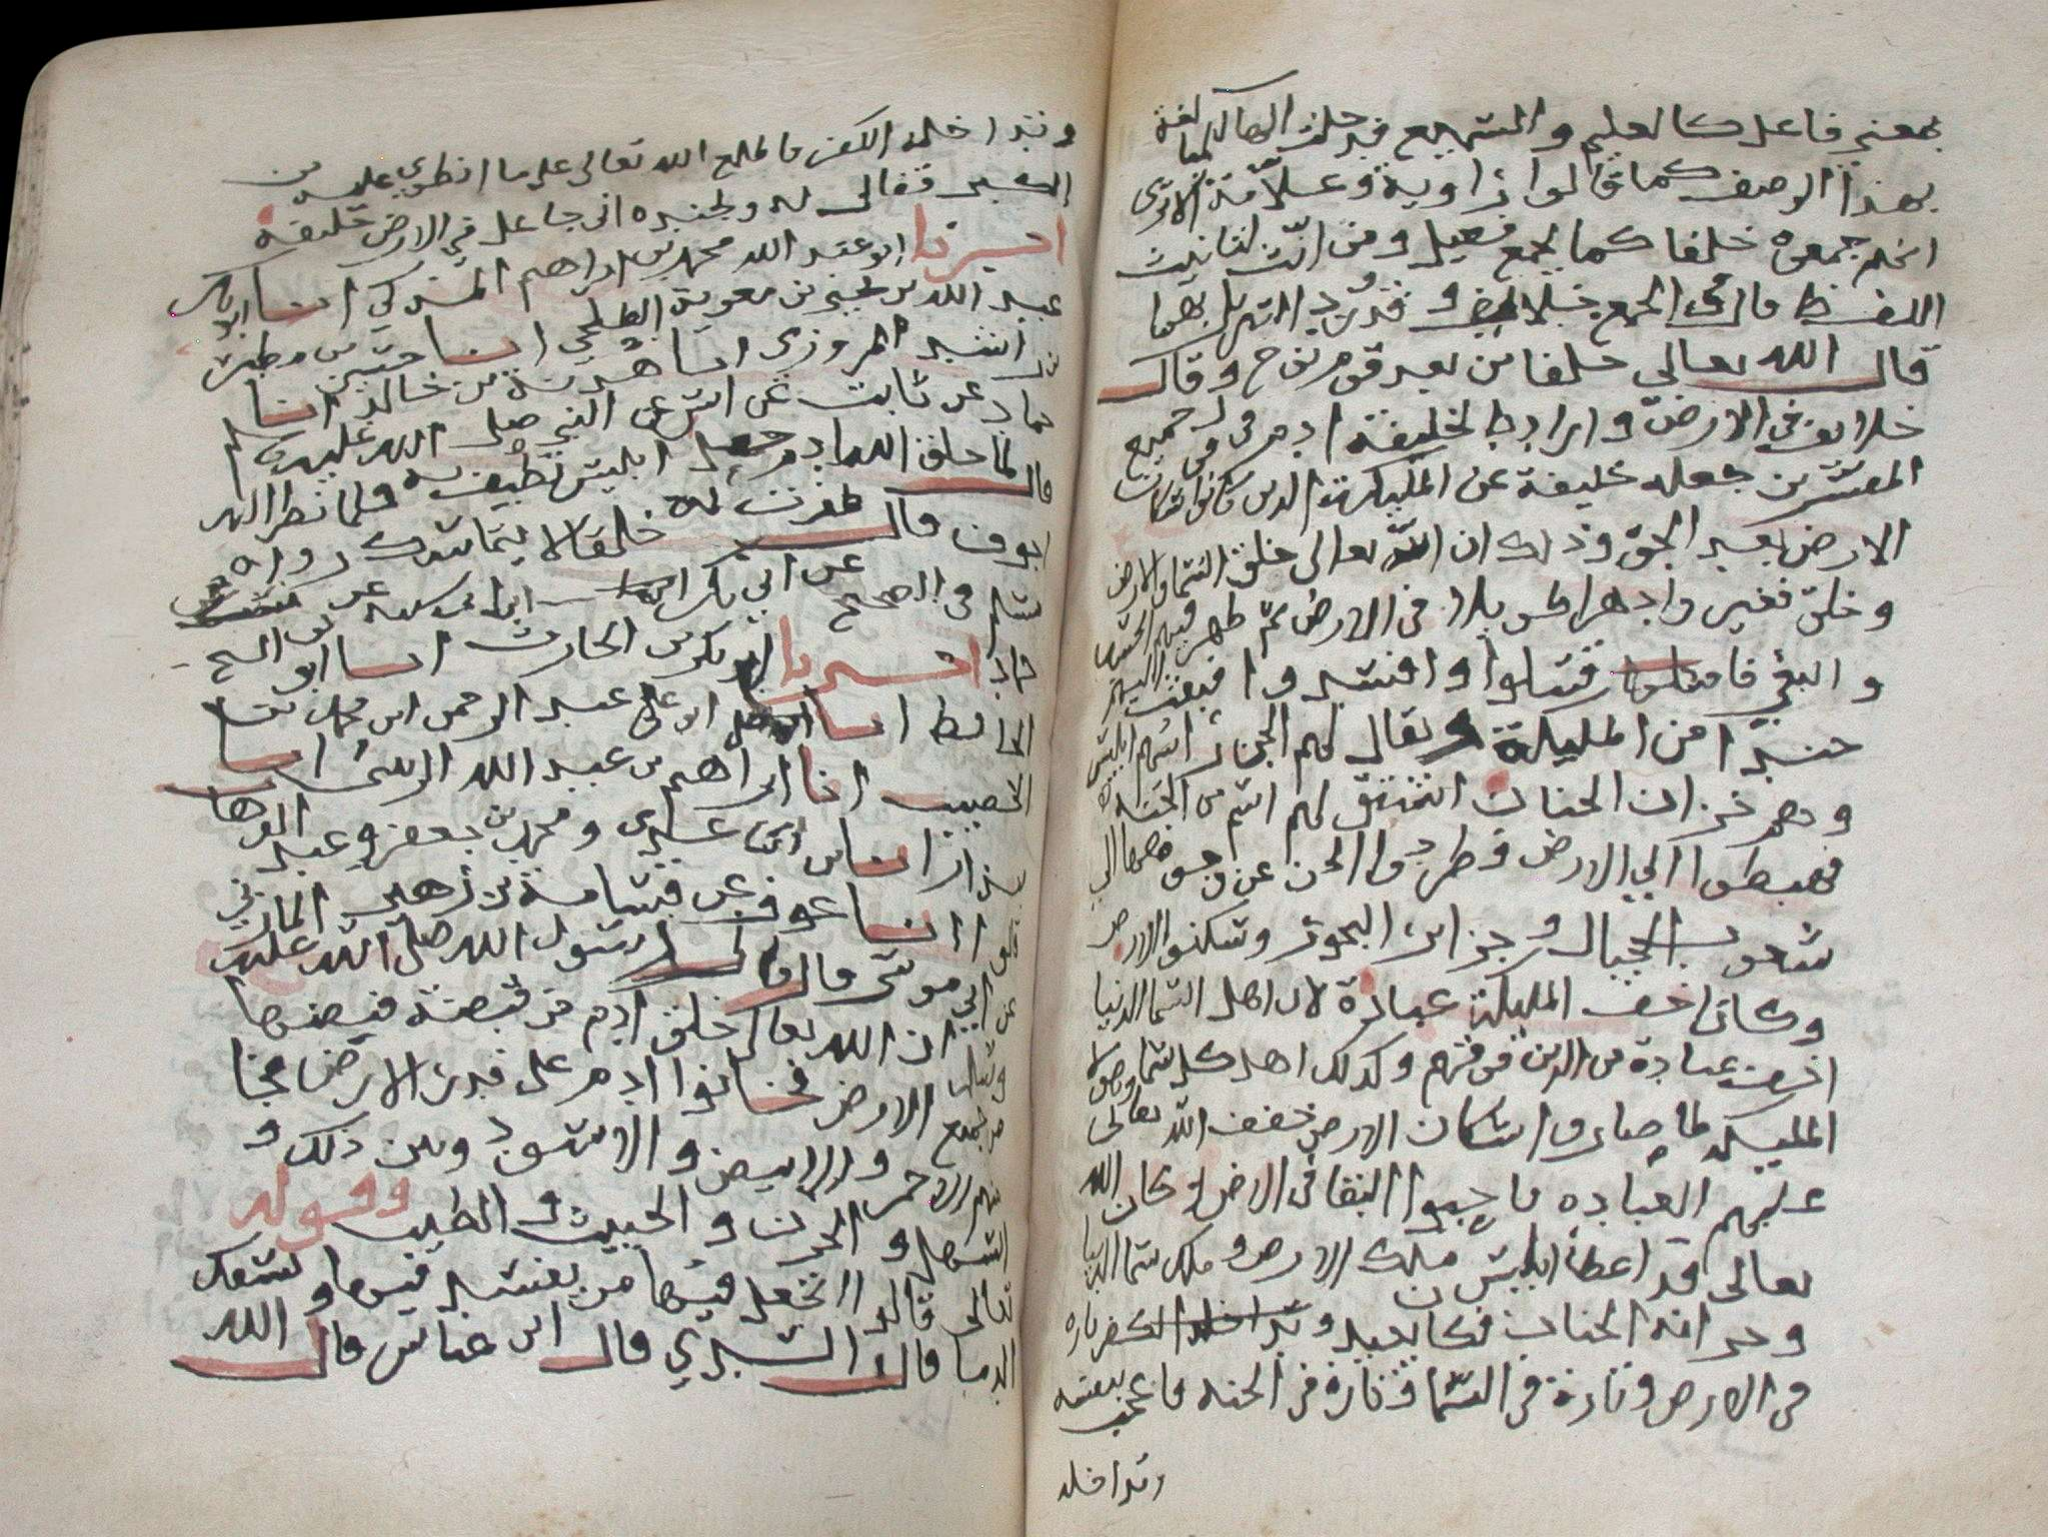 بمعنى فاعل كالعليم والسميع فدخلت الها للمبالغة
بهذا الوصف كما قالوا راوية وعلامة الا ترى
انهم جمعوه خلفا كما يجمع فعيل ومن انث لتانيث
اللفظ قال في الجمع خلايف وقد ورد التنزيل بهما
قال الله تعالى خلفا من بعد قوم نوح وقال
خلايف في الارض واراد بالخليفة ادم في قول جميع
المفسرين جعله خليفة عن المليكة الذين كانوا سكان
الارض بعد الجن وذلك ان الله تعالى خلق السما والارض
وخلق فغبروا دهرا طويلا في الارض ثم ظهر فيهم الحسد
والبغي فاقتتلوا وافسدوا فبعث الله اليهم
جندا من المليكة يقال لهم الجن راسهم ابليس
وهم خزان الجنان اشتق لهم اسم من الجنة
فهبطوا الى الارض وطردوا الجن عن وجوهها الى
شعوب الجبال وجزاير البحور وسكنوا الارض
وكانوا اخف المليكة عبادة لان اهل السما الدنيا
اخف عبادة من الذين فوقهم وكذلك اهل كل سما وهولا
المليكة لما صاروا سكان الارض خفف الله تعالى
عليهم العباده فاحبوا البقا في الارض وكان الله
تعالى قد اعطا ابليس ملك الارض وملك سما الدنيا
وخزانة الجنان فكان يعبد الله تارة
في الارض وتارة في السما وتارة في الجنه فاعجب بنفسه
وتداخله
وتداخله الكفر فاطلع الله تعالى على ما انطوى عليه من
الكبر فقال له ولجنده اني جاعل في الارض خليفة
اخبرنا ابو عبد الله محمد بن ابراهيم المزكي انا ابو بكر
عبد الله بن يحيى بن معوية الطلحي انا حسين
بن راشد المروزي انا هدبة بن خالد انا
حماد عن ثابت عن انس عن النبي صلى الله عليه وسلم
قال لما خلق الله ادم جعل ابليس يطيف به فلما نظر اليه
اجوف قال ظفرت به خلقا لا يتماسك رواه
مسلم في الصحيح عن ابي بكر ابن ابي شيبة عن
حماد اخبرنا ابو بكر بن الحارث انا ابو الشيخ
الحافظ انا عبد الرحمن ابن محمد
الخصيب انا ابراهيم بن عبد الله انا
ومحمد بن جعفر وعبد الوهاب
قالوا انا عوف عن قسامة بن زهير المازني
عن ابي موسى قال قال رسول الله صلى الله عليه
وسلم ان الله تعالى خلق ادم من قبضة قبضها
من جميع الارض فجا بنوا ادم على قدر الارض فجا
منهم الاحمر والابيض والاسود وبين ذلك و
السهل والحزن والخبيث والطيب وقوله
تعالى قالوا اتجعل فيها من يفسد فيها ويسفك
الدما قال السدي قال ابن عباس قال الله